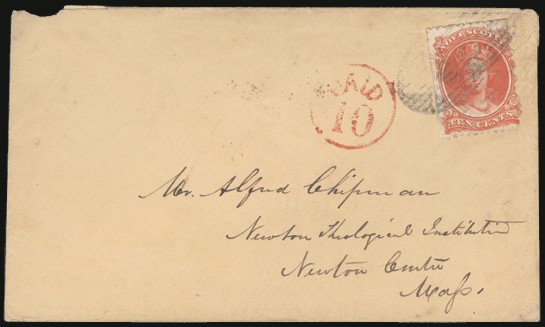 NOVA SCOTIA
TEN CENTS
PAID
10
Mr. Alfred Chipman
Newton Theological Institution
Newton Centre
Mass.